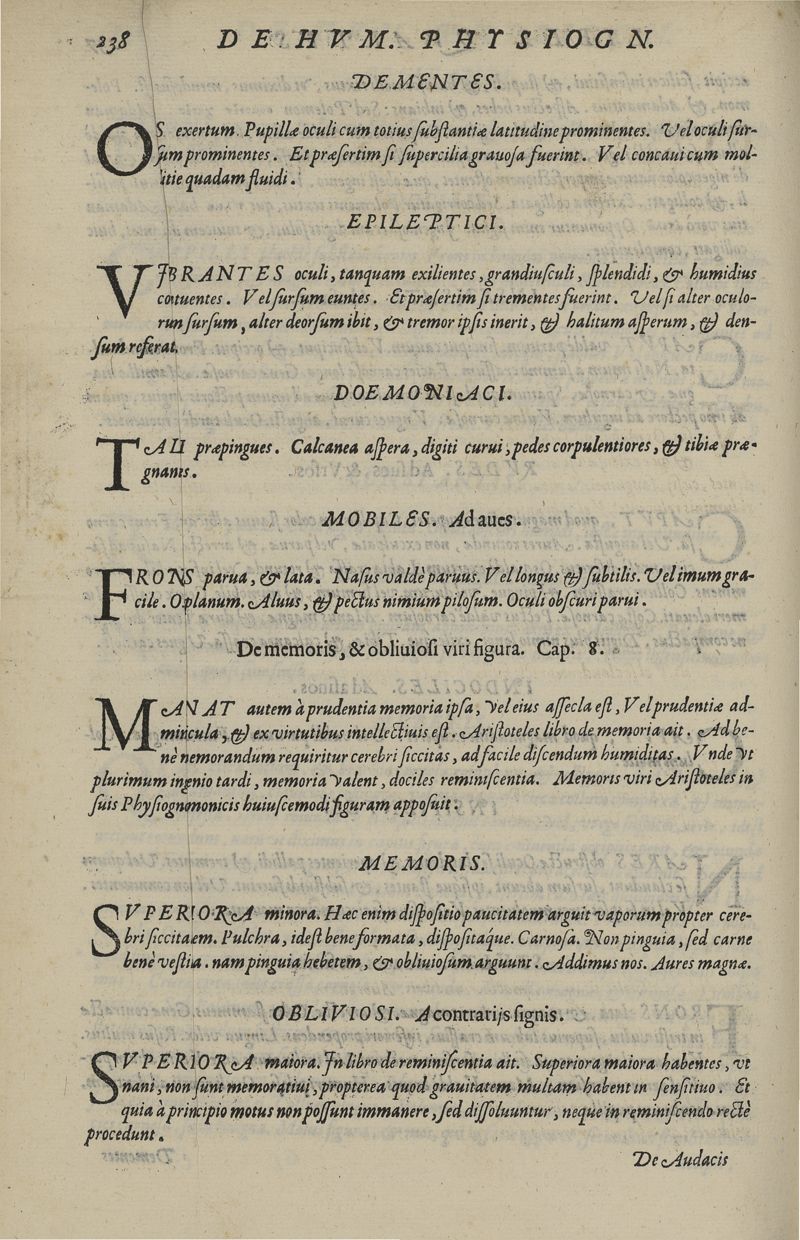 238 DE HVM. PHYSIOGN.
DEMENTES.
OS exertum. Pupillæ oculi cum totius ſubſtantiæ latitudine prominentes. Vel oculi ſur-
ſum prominentes. Et præſertim ſi ſupercilia grauoſa fuerint. Vel concaui cum mol-
litie quadam fluidi.
EPILEPTICI.
VIBRANTES oculi, tanquam exilientes, grandiuſculi, ſplendidi, & humidius
contuentes. Vel ſurſum euntes. Et præſertim ſi trementes fuerint. Vel ſi alter oculo-
rum ſurſum, alter deorſum ibit, & tremor ipſis inerit, & halitum aſperum, & den-
ſum referat.
DOEMONIACI.
TALI præpingues. Calcanea aſpera, digiti curui, pedes corpulentiores, & tibiæ præ-
gnantes.
MOBILES. Ad aues.
FRONS parua, & lata. Naſus valdè paruus. Vel longus & ſubtilis. Vel imum gra-
cile. O planum. Aluus, & pectus nimium piloſum. Oculi obſcuri parui.
De memoris, & obliuioſi viri figura. Cap. 8.
MANAT autem à prudentia memoria ipſa, vel eius aſſecla eſt, Vel prudentiæ ad-
minicula, & ex virtutibus intellectiuis eſt. Ariſtoteles libro de memoria ait. Ad be-
nè nemorandum requiritur cerebri ſiccitas, ad facile diſcendum humiditas. Vnde vt
plurimum ingenio tardi, memoria valent, dociles reminiſcentia. Memoris viri Ariſtoteles in
ſuis Phyſiognomonicis huiuſcemodi figuram appoſuit.
MEMORIS.
SVPERIORA minora. Hæc enim diſpoſitio paucitatem arguit vaporum propter cere-
bri ſiccitatem. Pulchra, ideſt bene formata, diſpoſitaque. Carnoſa. Non pinguia, ſed carne
benè veſtita. nam pinguia hebetem, & obliuioſum arguunt. Addimus nos. Aures magnæ.
OBLIVIOSI. A contrarijs ſignis.
SVPERIORA maiora. In libro de reminiſcentia ait. Superiora maiora habentes, vt
nani, non ſunt memoratiui, propterea quod grauitatem multam habent in ſenſitiuo. Et
quia à principio motus non poſſunt immanere, ſed diſſoluuntur, neque in reminiſcendo rectè
procedunt.
De Audacis